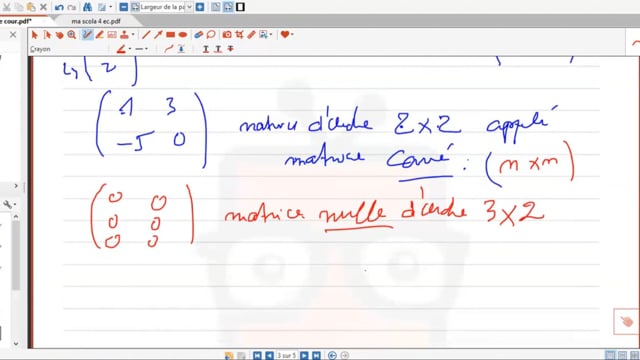 e cour.pdf*
ma scola 4 ec.pdf
Largeur de la pag
Crayon
2
1 3 matrice d'ordre 2×2 appelé
-5 0 matrice Carré : (n×n)
0 0
0 0 matrice nulle d'ordre 3×2
0 0
3 sur 5